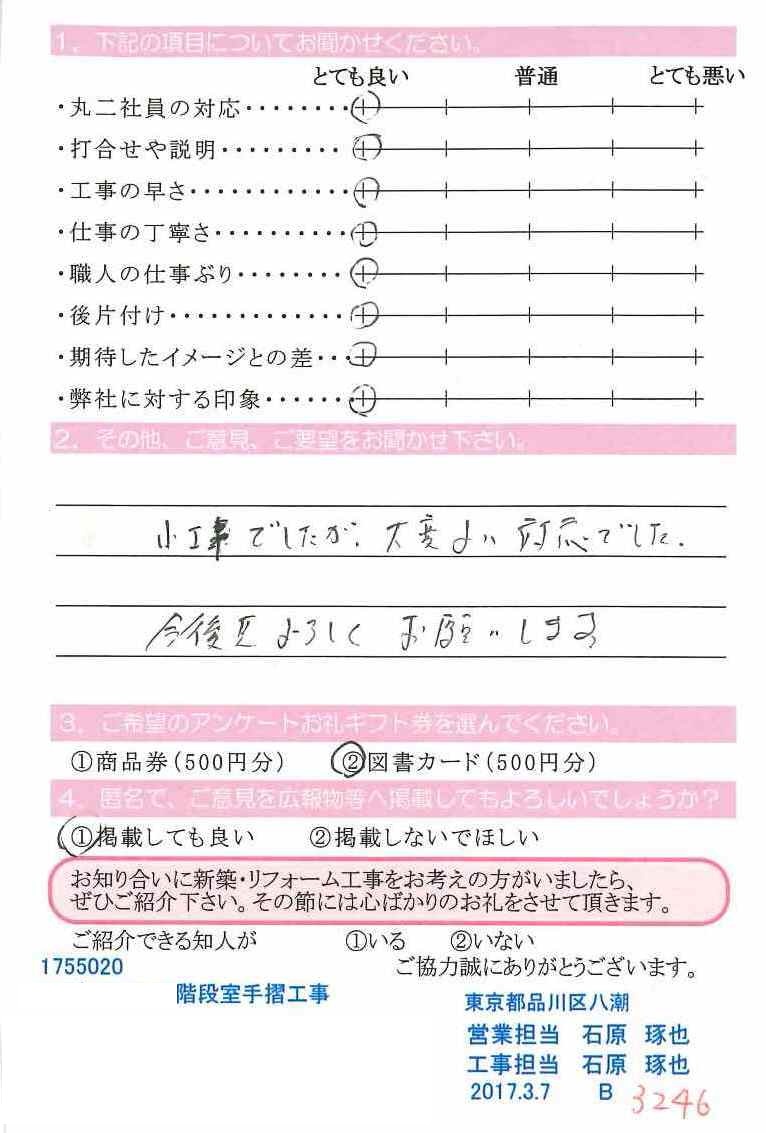 1. 下記の項目についてお聞かせください。
とても良い 普通 とても悪い
・丸二社員の対応・・・・・・・・
・打合せや説明・・・・・・・・・
・工事の早さ・・・・・・・・・・・・
・仕事の丁寧さ・・・・・・・・・・
・職人の仕事ぶり・・・・・・・・
・後片付け・・・・・・・・・・・・・
・期待したイメージとの差・・・
・弊社に対する印象・・・・・・・
2. その他、ご意見、ご要望をお聞かせ下さい。
小工事でしたが、大変よい対応でした。
今後共よろしくお願いします
3. ご希望のアンケートお礼ギフト券を選んでください。
①商品券(500円分) ②図書カード(500円分)
4. 匿名で、ご意見を広報物等へ掲載してもよろしいでしょうか?
①掲載しても良い ②掲載しないでほしい
お知り合いに新築・リフォーム工事をお考えの方がいましたら、
ぜひご紹介下さい。その節には心ばかりのお礼をさせて頂きます。
ご紹介できる知人が ①いる ②いない
1755020 ご協力誠にありがとうございます。
階段室手摺工事
東京都品川区八潮
営業担当 石原 琢也
工事担当 石原 琢也
2017.3.7 B 3246